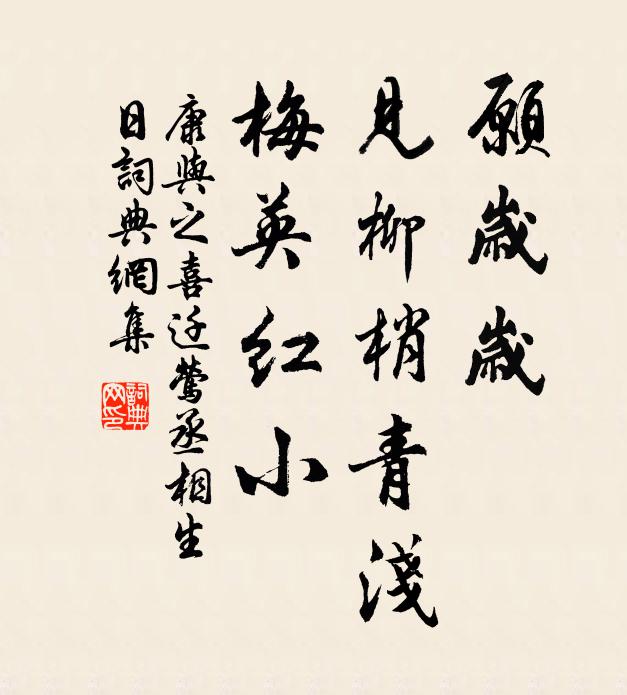 願歲歲
見柳梢青淺
梅英紅小
康與之喜迁鶯丞相生
日詞典網集
詞典
网印